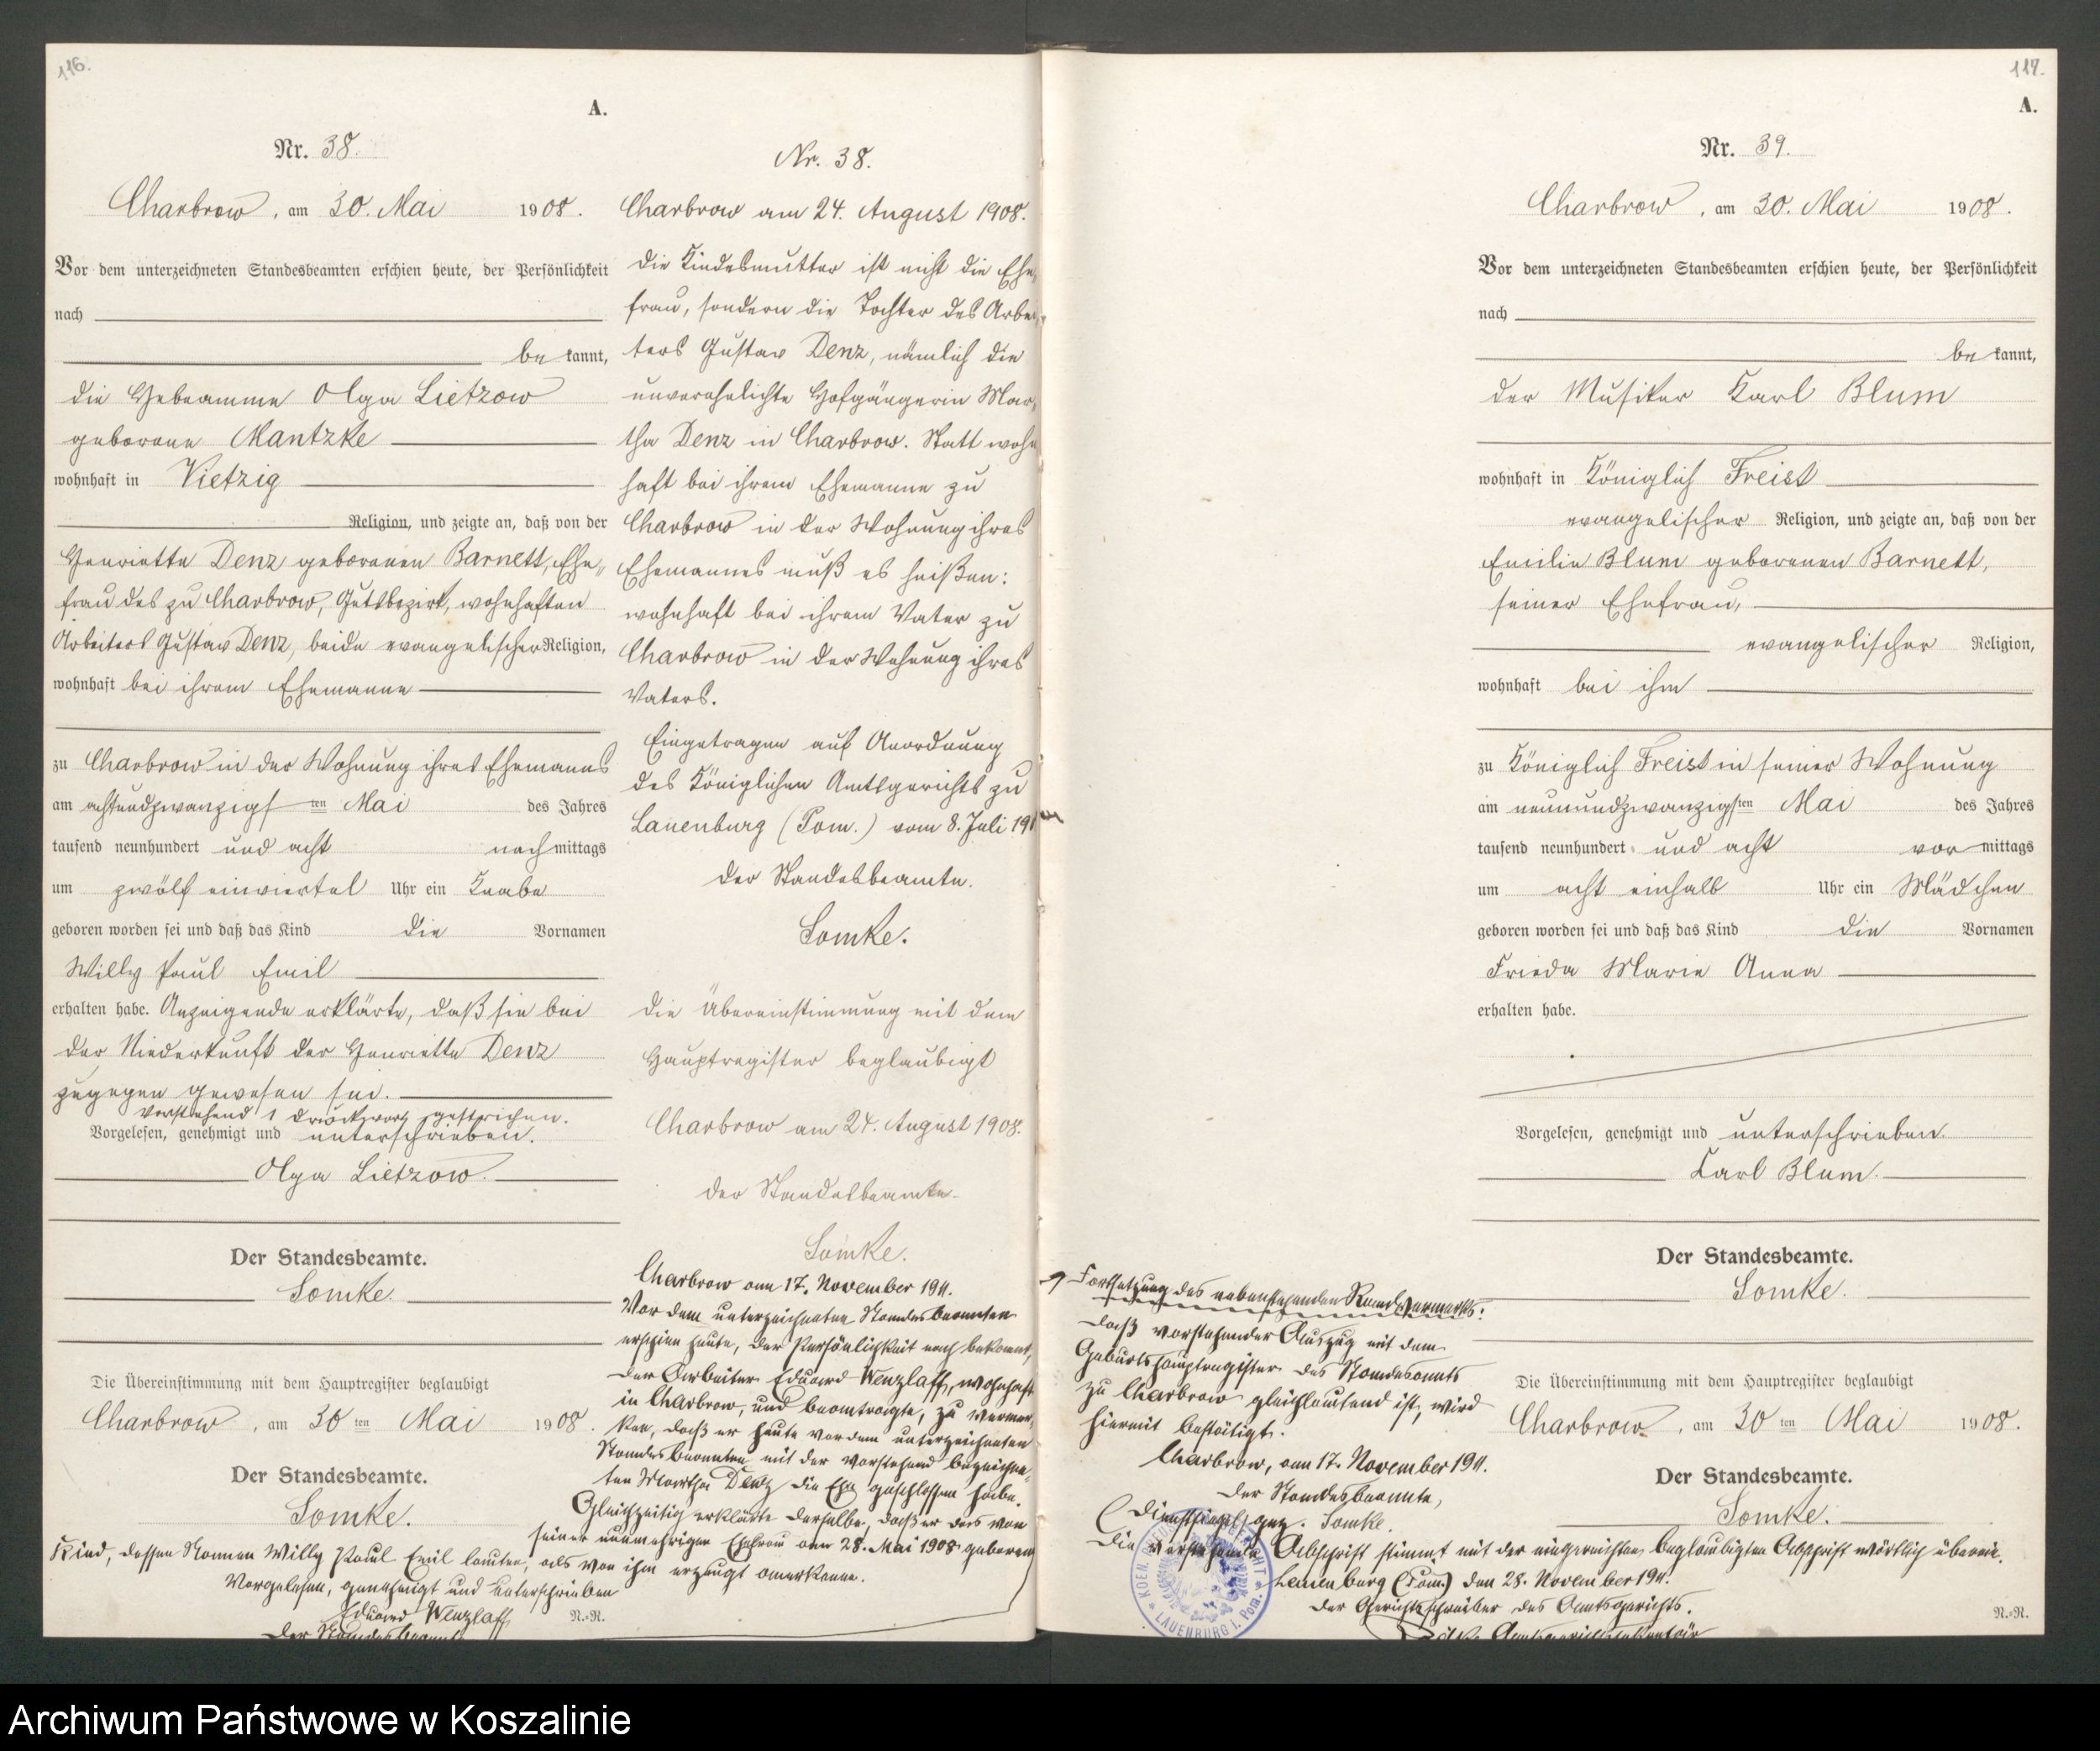 116.
A.
Nr. 38.
Charbrow, am 30. Mai 1908.
Vor dem unterzeichneten Standesbeamten erschien heute, der Persönlichkeit
nach
be kannt,
die Hebeamme Olga Lietzow
geborene Mantzke
wohnhaft in Vietzig
Religion, und zeigte an, daß von der
Henriette Denz geborenen Barnett, Ehe„
frau des zu Charbrow, Gutsbezirk, wohnhaften
Arbeiters Gustav Denz, beide evangelischer Religion,
wohnhaft bei ihrem Ehemanne
zu Charbrow in der Wohnung ihres Ehemanns
am achtundzwanzigs ten Mai des Jahres
tausend neunhundert und acht nach mittags
um zwölf einviertel Uhr ein Knabe
geboren worden sei und daß das Kind die Vornamen
Willy Paul Emil
erhalten habe. Anzeigende erklärte, daß sie bei
der Niederkunft der Henriette Denz
zugegen gewesen sei.
Vorstehend 1 Druckwort gestrichen.
Vorgelesen, genehmigt und unterschrieben.
Olga Lietzow.
Der Standesbeamte.
Somke.
Die Übereinstimmung mit dem Hauptregister beglaubigt
Charbrow, am 30 ten Mai 1908.
Der Standesbeamte.
Somke.
Nr. 38.
Charbrow am 24. August 1908.
Die Kindesmutter ist nicht die Ehe„
frau, sondern die Tochter des Arbei„
ters Gustav Denz, nämlich die
unverehelichte Hofgängerin Mar„
tha Denz in Charbrow. Statt wohn
haft bei ihrem Ehemanne zu
Charbrow in der Wohnung ihres
Ehemannes muß es heißen:
wohnhaft bei ihrem Vater zu
Charbrow in der Wohnung ihres
Vaters.
Eingetragen auf Anordnung
des Königlichen Amtsgerichts zu
Lauenburg (Pom.) vom 8. Juli 19
Der Standesbeamte.
Somke.
Die Übereinstimmung mit dem
Hauptregister beglaubigt
Charbrow am 24. August 1908.
Der Standesbeamte.
Somke.
Charbrow am 17. November 1911.
Vor dem unterzeichneten Standesbeamten
erschien heute, der Persönlichkeit nach bekannt,
der Arbeiter Eduard Wenzlaff, wohnhaft
in Charbrow, und beantragte, zu vermer„
ken, daß er heute vor dem unterzeichneten
Standesbeamten mit der vorstehend bezeichne„
ten Martha Denz die Ehe geschlossen habe.
Gleichzeitig erklärte derselbe, daß er das von
seiner nunmehrigen Ehefrau am 28. Mai 1908 geborene
Kind, dessen Namen Willy Paul Emil lauten, als von ihm erzeugt anerkenne.
Vorgelesen, genehmigt und unterschrieben
Eduard Wenzlaff
Der Standesbeamte
N.=R.
117.
A.
Nr. 39.
Charbrow, am 30. Mai 1908.
Vor dem unterzeichneten Standesbeamten erschien heute, der Persönlichkeit
nach
be kannt,
der Musiker Karl Blum
wohnhaft in Königlich Freist
evangelischer Religion, und zeigte an, daß von der
Emilie Blum geborenen Barnett,
seiner Ehefrau,
evangelischer Religion,
wohnhaft bei ihm
zu Königlich Freist in seiner Wohnung
am neunundzwanzigs ten Mai des Jahres
tausend neunhundert und acht vor mittags
um acht einhalb Uhr ein Mädchen
geboren worden sei und daß das Kind die Vornamen
Frieda Marie Anna
erhalten habe.
Vorgelesen, genehmigt und unterschrieben.
Carl Blum.
Der Standesbeamte.
Somke.
Die Übereinstimmung mit dem Hauptregister beglaubigt
Charbrow, am 30 ten Mai 1908.
Der Standesbeamte.
Somke.
N.=R.
Fortsetzung des nebenstehenden Randvermerks:
Daß vorstehender Auszug mit dem
Geburtshauptregister des Standesamts
zu Charbrow gleichlautend ist, wird
hiermit bestätigt.
Charbrow, am 17. November 1911.
Der Standesbeamte,
(Dienstsiegel) gez. Somke.
Die vorstehende Abschrift stimmt mit der eingereichten beglaubigten Abschrift wörtlich überein.
Lauenburg (Pom.) den 28. November 1911.
Der Gerichtsschreiber des Amtsgerichts.
LAUENBURG i. Pom.
Archiwum Państwowe w Koszalinie